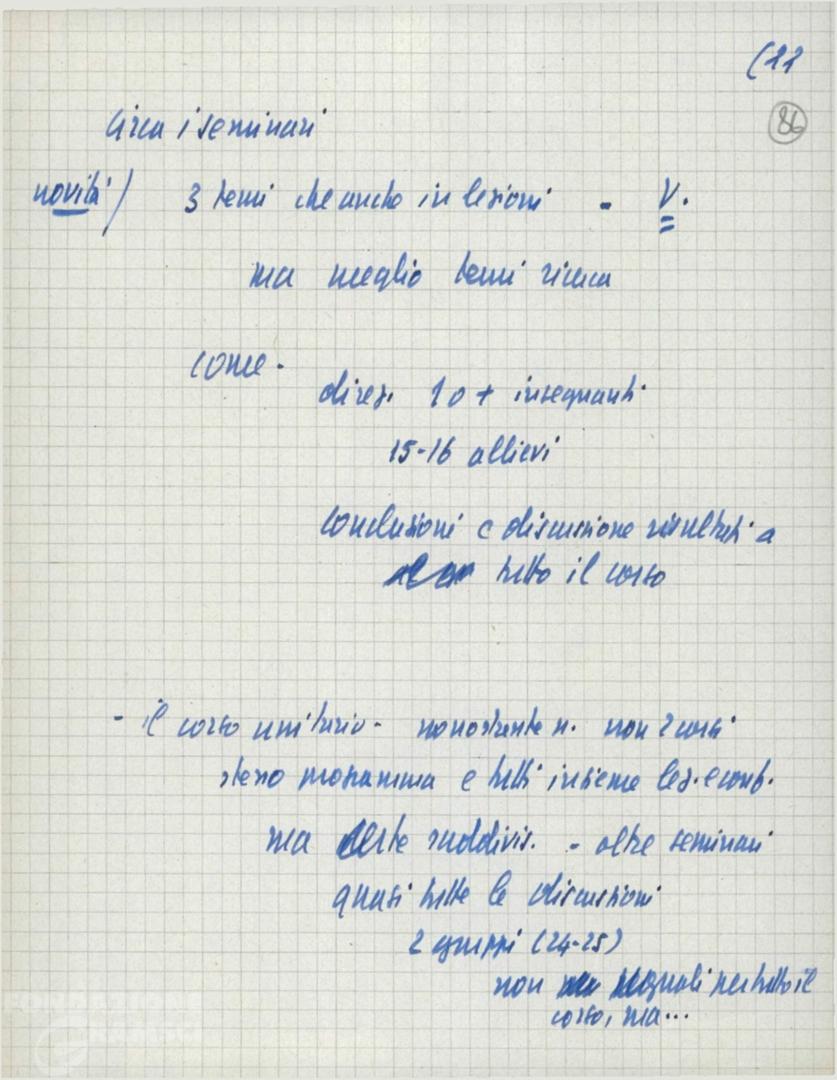 (11
86
Circa i seminari
novità / 3 temi che anche in lezioni - V.
ma meglio temi ricerca
come -
direz. 1 o + insegnanti
15-16 allievi
conclusioni e discussione risultati a
tutto il corso
- il corso unitario - nonostante n. non 2 corsi
stesso programma e tutti insieme lez. e conf.
ma suddivis. - oltre seminari
quasi tutte le discussioni
2 gruppi (24-25)
non uguali per tutto il
corso, ma...